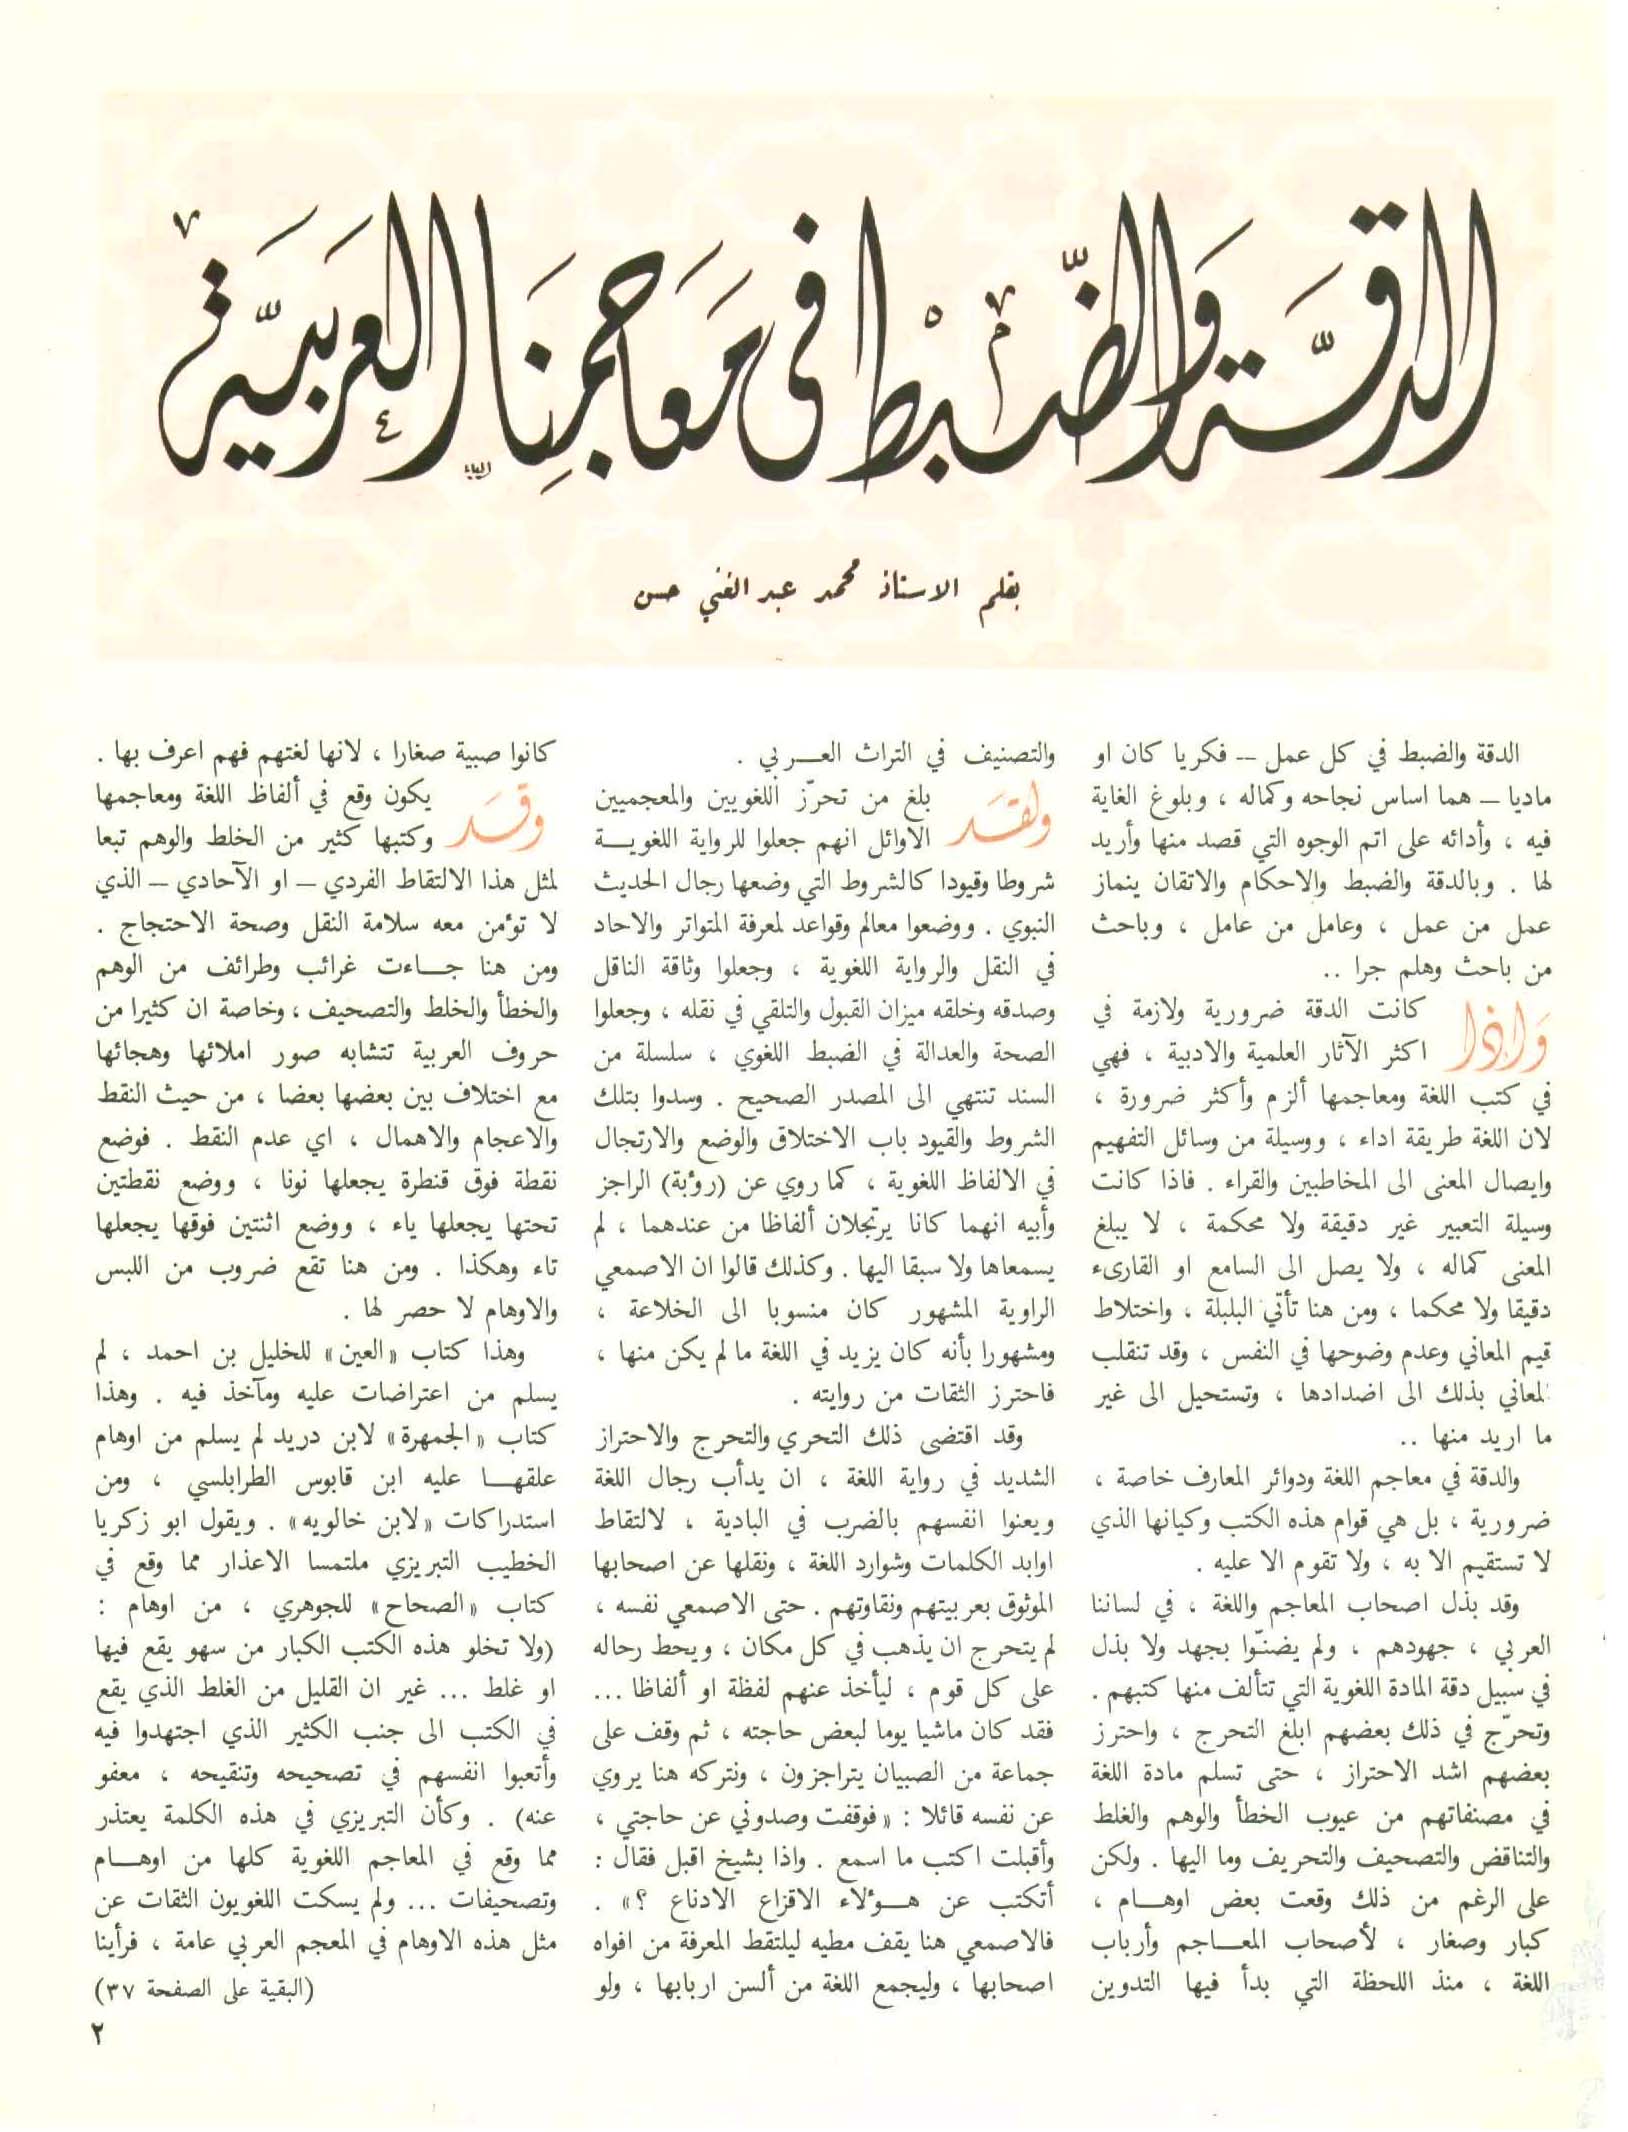 الدقة والضبط في معاجمنا العربية
بقلم الاستاذ محمد عبد الغني حسن
الدقة والضبط في كل عمل – فكريا كان او
ماديا – هما اساس نجاحه وكماله ، وبلوغ الغاية
فيه ، وأدائه على اتم الوجوه التي قصد منها وأريد
لها . وبالدقة والضبط والاحكام والاتقان ينماز
عمل من عمل ، وعامل من عامل ، وباحث
من باحث وهلم جرا ..
واذا كانت الدقة ضرورية ولازمة في
اكثر الآثار العلمية والادبية ، فهي
في كتب اللغة ومعاجمها ألزم وأكثر ضرورة ،
لان اللغة طريقة اداء ، ووسيلة من وسائل التفهيم
وايصال المعنى الى المخاطبين والقراء . فاذا كانت
وسيلة التعبير غير دقيقة ولا محكمة ، لا يبلغ
المعنى كماله ، ولا يصل الى السامع او القارىء
دقيقا ولا محكما ، ومن هنا تأتي البلبلة ، واختلاط
قيم المعاني وعدم وضوحها في النفس ، وقد تنقلب
المعاني بذلك الى اضدادها ، وتستحيل الى غير
ما اريد منها ..
والدقة في معاجم اللغة ودوائر المعارف خاصة ،
ضرورية ، بل هي قوام هذه الكتب وكيانها الذي
لا تستقيم الا به ، ولا تقوم الا عليه .
وقد بذل اصحاب المعاجم واللغة ، في لساننا
العربي ، جهودهم ، ولم يضنّوا بجهد ولا بذل
في سبيل دقة المادة اللغوية التي تتألف منها كتبهم .
وتحرّج في ذلك بعضهم ابلغ التحرج ، واحترز
بعضهم اشد الاحتراز ، حتى تسلم مادة اللغة
في مصنفاتهم من عيوب الخطأ والوهم والغلط
والتناقض والتصحيف والتحريف وما اليها . ولكن
على الرغم من ذلك وقعت بعض اوهام ،
كبار وصغار ، لأصحاب المعاجم وأرباب
اللغة ، منذ اللحظة التي بدأ فيها التدوين
والتصنيف في التراث العربي .
ولقد بلغ من تحرّز اللغويين والمعجميين
الاوائل انهم جعلوا للرواية اللغوية
شروطا وقيودا كالشروط التي وضعها رجال الحديث
النبوي . ووضعوا معالم وقواعد لمعرفة المتواتر والاحاد
في النقل والرواية اللغوية ، وجعلوا وثاقة الناقل
وصدقه وخلقه ميزان القبول والتلقي في نقله ، وجعلوا
الصحة والعدالة في الضبط اللغوي ، سلسلة من
السند تنتهي الى المصدر الصحيح . وسدوا بتلك
الشروط والقيود باب الاختلاق والوضع والارتجال
في الالفاظ اللغوية ، كما روي عن (رؤبة) الراجز
وأبيه انهما كانا يرتجلان ألفاظا من عندهما ، لم
يسمعاها ولا سبقا اليها . وكذلك قالوا ان الاصمعي
الراوية المشهور كان منسوبا الى الخلاعة ،
ومشهورا بأنه كان يزيد في اللغة ما لم يكن منها ،
فاحترز الثقات من روايته .
وقد اقتضى ذلك التحري والتحرج والاحتراز
الشديد في رواية اللغة ، ان يدأب رجال اللغة
ويعنوا انفسهم بالضرب في البادية ، لالتقاط
اوابد الكلمات وشوارد اللغة ، ونقلها عن اصحابها
الموثوق بعربيتهم ونقاوتهم . حتى الاصمعي نفسه ،
لم يتحرج ان يذهب في كل مكان ، ويحط رحاله
على كل قوم ، ليأخذ عنهم لفظة او ألفاظا ...
فقد كان ماشيا يوما لبعض حاجته ، ثم وقف على
جماعة من الصبيان يتراجزون ، ونتركه هنا يروي
عن نفسه قائلا : «فوقفت وصدوني عن حاجتي ،
وأقبلت اكتب ما اسمع . واذا بشيخ اقبل فقال :
أتكتب عن هؤلاء الاقزاع الادناع ؟» .
فالاصمعي هنا يقف مطيه ليلتقط المعرفة من افواه
اصحابها ، وليجمع اللغة من ألسن اربابها ، ولو
كانوا صبية صغارا ، لانها لغتهم فهم اعرف بها .
وقد يكون وقع في ألفاظ اللغة ومعاجمها
وكتبها كثير من الخلط والوهم تبعا
لمثل هذا الالتقاط الفردي – او الآحادي – الذي
لا تؤمن معه سلامة النقل وصحة الاحتجاج .
ومن هنا جاءت غرائب وطرائف من الوهم
والخطأ والخلط والتصحيف ، وخاصة ان كثيرا من
حروف العربية تتشابه صور املائها وهجائها
مع اختلاف بين بعضها بعضا ، من حيث النقط
والاعجام والاهمال ، اي عدم النقط . فوضع
نقطة فوق قنطرة يجعلها نونا ، ووضع نقطتين
تحتها يجعلها ياء ، ووضع اثنتين فوقها يجعلها
تاء وهكذا . ومن هنا تقع ضروب من اللبس
والاوهام لا حصر لها .
وهذا كتاب «العين» للخليل بن احمد ، لم
يسلم من اعتراضات عليه ومآخذ فيه . وهذا
كتاب «الجمهرة» لابن دريد لم يسلم من اوهام
علقها عليه ابن قابوس الطرابلسي ، ومن
استدراكات «لابن خالويه» . ويقول ابو زكريا
الخطيب التبريزي ملتمسا الاعذار مما وقع في
كتاب «الصحاح» للجوهري ، من اوهام :
(ولا تخلو هذه الكتب الكبار من سهو يقع فيها
او غلط ... غير ان القليل من الغلط الذي يقع
في الكتب الى جنب الكثير الذي اجتهدوا فيه
وأتعبوا انفسهم في تصحيحه وتنقيحه ، معفو
عنه) . وكأن التبريزي في هذه الكلمة يعتذر
مما وقع في المعاجم اللغوية كلها من اوهام
وتصحيفات ... ولم يسكت اللغويون الثقات عن
مثل هذه الاوهام في المعجم العربي عامة ، فرأينا
(البقية على الصفحة ٣٧)
٢